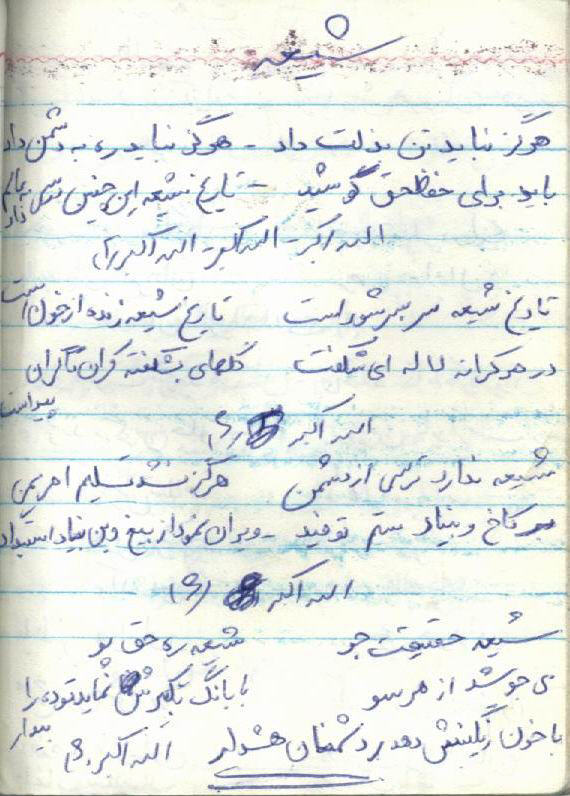 شیعه
هرگز نباید تن بذلت داد - هرگز نباید ره به دشمن داد
باید برای حفظ حق کوشید - تاریخ شیعه این چنین درس
الله اکبر - الله اکبر - الله اکبر
تاریخ شیعه سر بسر شور است تاریخ شیعه زنده از خون است
در هر کرانه لاله ای شگفت گلهای بشگفته کران تا کران پیداست
الله اکبر
شیعه ندارد ترسی از دشمن هرگز نشد تسلیم اهریمن
بر کاخ و بنیاد ستم توفید - ویران نمود از بیخ و بن بنیاد استبداد
الله اکبر
شیعه حقیقت جو شیعه ره حق پو
می جوشد از هر سو با بانگ تکبیرش نماید توده را بیدار
با خون رنگینش دهد بر دشمنان هشدار الله اکبر